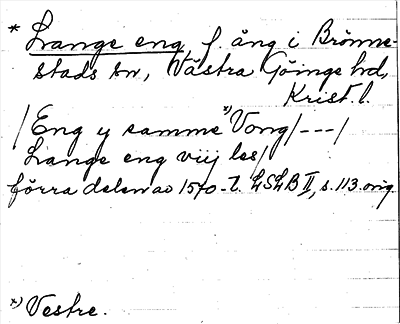 * Lange eng, f. äng i Brönne-
stads sn, Västra Göinge hd,
Krist. l.
/Eng y samme *) Vong/---/
Lange eng vij les/
förra delen av 1570-t. LSLB II, s. 113. orig.
*) Vestre.